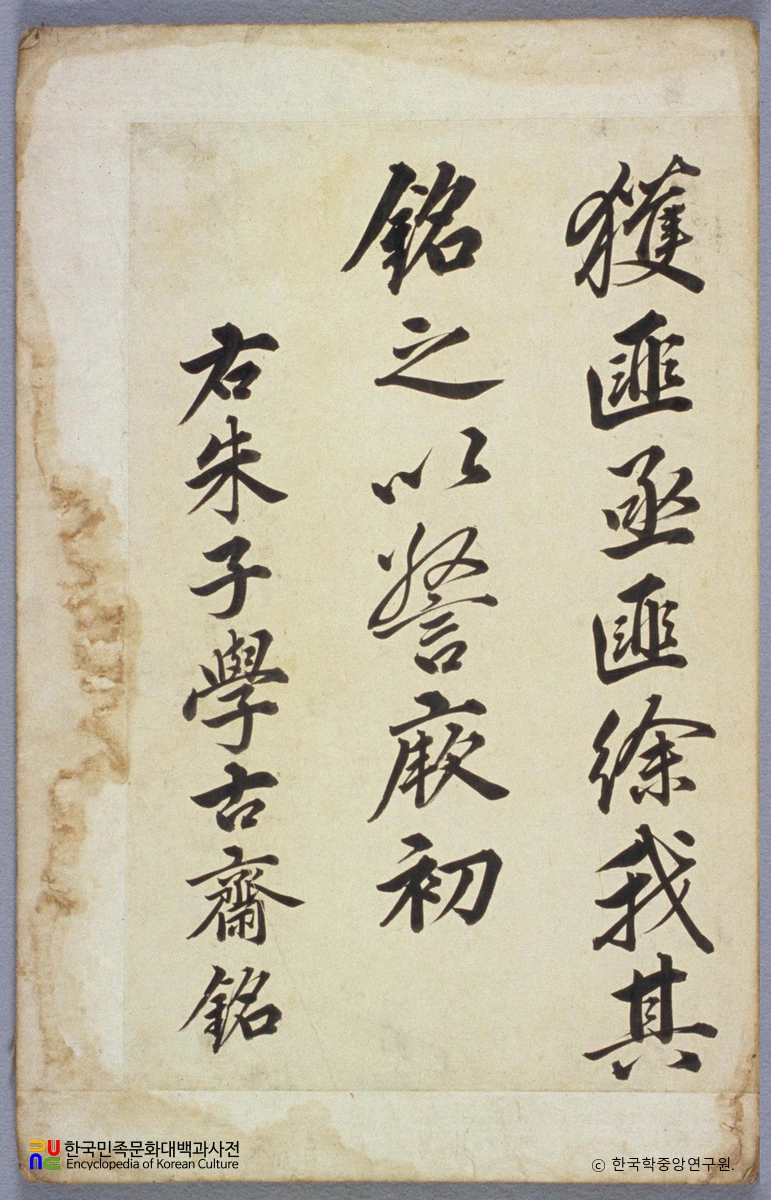 獲匪亟匪徐我其
銘之以警厥初
右朱子學古齋銘
한국민족문화대백과사전
Encyclopedia of Korean Culture
© 한국학중앙연구원.